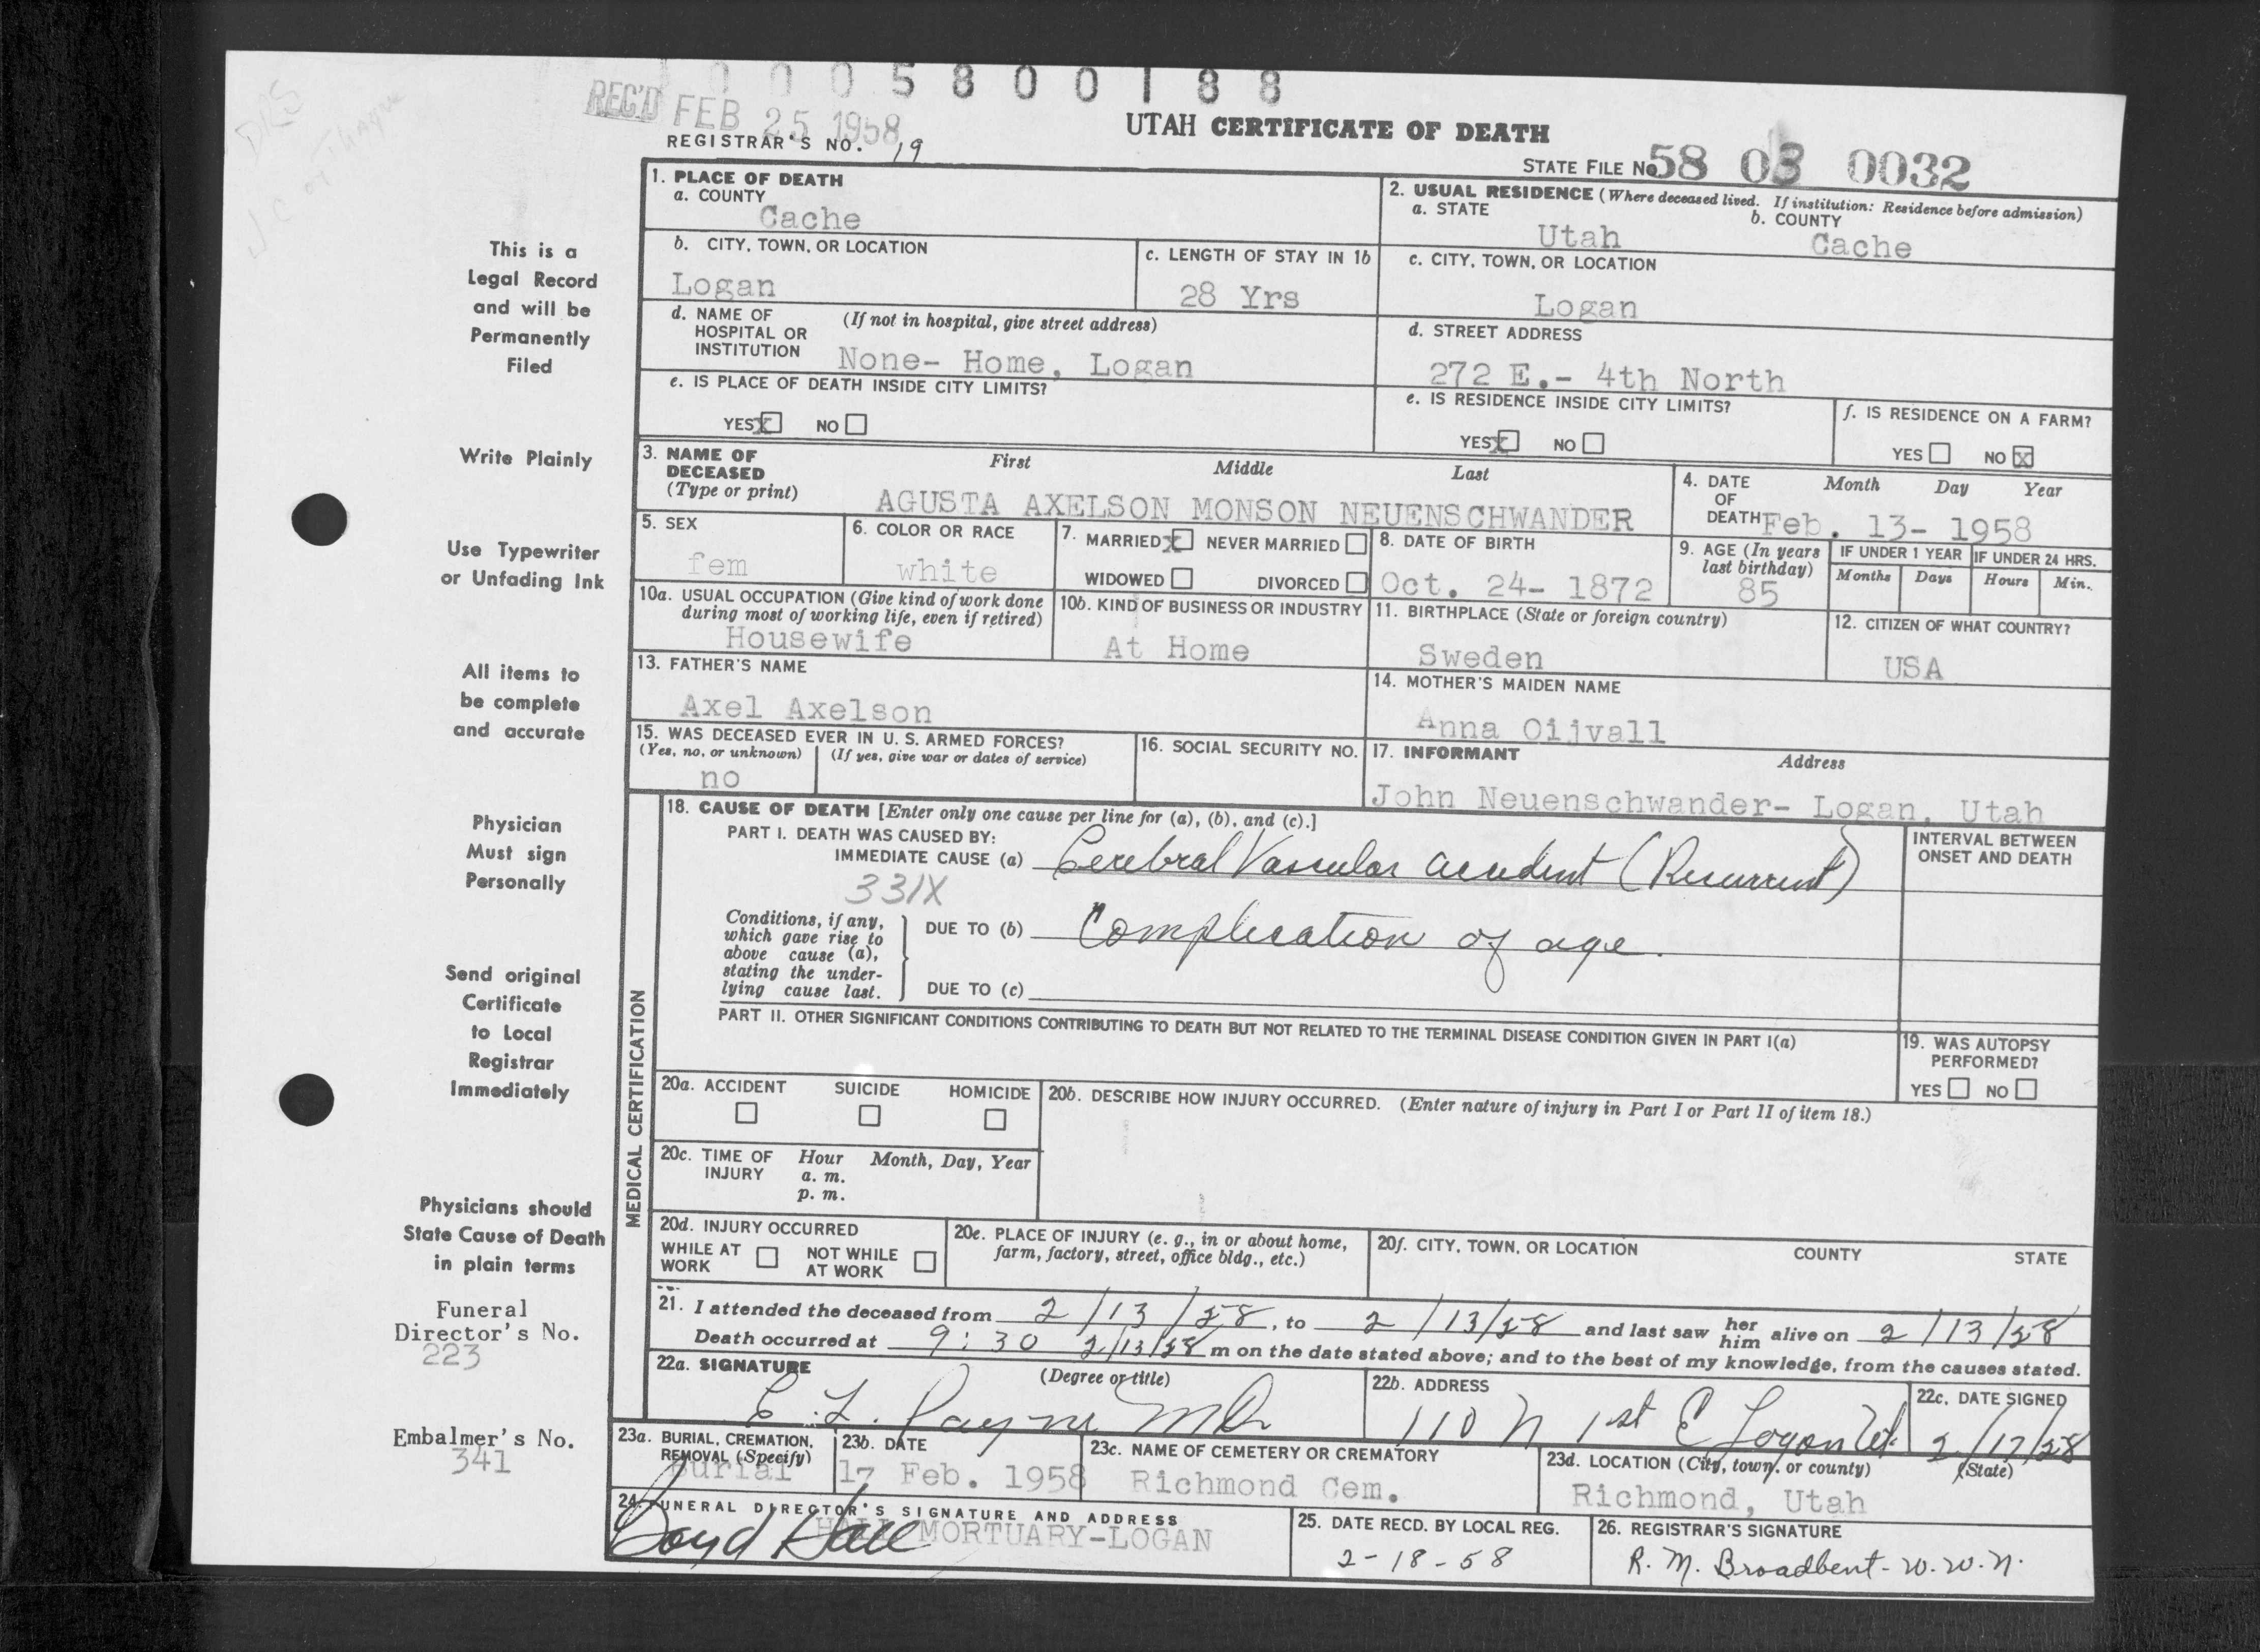 0 0 0 5 8 0 0 1 8 8
REC'D FEB 25 1958
UTAH CERTIFICATE OF DEATH
REGISTRAR'S NO. 19
STATE FILE No 58 03 0032
This is a
Legal Record
and will be
Permanently
Filed
Write Plainly
Use Typewriter
or Unfading Ink
All items to
be complete
and accurate
Physician
Must sign
Personally
Send original
Certificate
to Local
Registrar
Immediately
Physicians should
State Cause of Death
in plain terms
Funeral
Director's No.
223
Embalmer's No.
341
1. PLACE OF DEATH
a. COUNTY
Cache
2. USUAL RESIDENCE (Where deceased lived. If institution: Residence before admission)
a. STATE b. COUNTY
Utah Cache
b. CITY, TOWN, OR LOCATION
Logan
c. LENGTH OF STAY IN 1b
28 Yrs
c. CITY, TOWN, OR LOCATION
Logan
d. NAME OF HOSPITAL OR INSTITUTION (If not in hospital, give street address)
None- Home, Logan
d. STREET ADDRESS
272 E.- 4th North
e. IS PLACE OF DEATH INSIDE CITY LIMITS?
YES X NO
e. IS RESIDENCE INSIDE CITY LIMITS?
YES X NO
f. IS RESIDENCE ON A FARM?
YES NO X
3. NAME OF DECEASED (Type or print)
First Middle Last
AGUSTA AXELSON MONSON NEUENSCHWANDER
4. DATE OF DEATH Month Day Year
Feb. 13- 1958
5. SEX
fem
6. COLOR OR RACE
white
7. MARRIED X NEVER MARRIED
WIDOWED DIVORCED
8. DATE OF BIRTH
Oct. 24- 1872
9. AGE (In years last birthday)
85
IF UNDER 1 YEAR IF UNDER 24 HRS.
Months Days Hours Min.
10a. USUAL OCCUPATION (Give kind of work done during most of working life, even if retired)
Housewife
10b. KIND OF BUSINESS OR INDUSTRY
At Home
11. BIRTHPLACE (State or foreign country)
Sweden
12. CITIZEN OF WHAT COUNTRY?
USA
13. FATHER'S NAME
Axel Axelson
14. MOTHER'S MAIDEN NAME
Anna Oijvall
15. WAS DECEASED EVER IN U. S. ARMED FORCES?
(Yes, no, or unknown) (If yes, give war or dates of service)
no
16. SOCIAL SECURITY NO.
17. INFORMANT Address
John Neuenschwander- Logan, Utah
MEDICAL CERTIFICATION
18. CAUSE OF DEATH [Enter only one cause per line for (a), (b), and (c).]
PART I. DEATH WAS CAUSED BY:
IMMEDIATE CAUSE (a) Cerebral Vascular accident (Recurrent)
331X
INTERVAL BETWEEN ONSET AND DEATH
Conditions, if any, which gave rise to above cause (a), stating the underlying cause last.
DUE TO (b) Complication of age.
DUE TO (c)
PART II. OTHER SIGNIFICANT CONDITIONS CONTRIBUTING TO DEATH BUT NOT RELATED TO THE TERMINAL DISEASE CONDITION GIVEN IN PART I(a)
19. WAS AUTOPSY PERFORMED?
YES NO
20a. ACCIDENT SUICIDE HOMICIDE
20b. DESCRIBE HOW INJURY OCCURRED. (Enter nature of injury in Part I or Part II of item 18.)
20c. TIME OF INJURY Hour Month, Day, Year
a. m.
p. m.
20d. INJURY OCCURRED
WHILE AT WORK NOT WHILE AT WORK
20e. PLACE OF INJURY (e. g., in or about home, farm, factory, street, office bldg., etc.)
20f. CITY, TOWN, OR LOCATION COUNTY STATE
21. I attended the deceased from 2/13/58, to 2/13/58 and last saw her him alive on 2/13/58
Death occurred at 9:30 2/13/58 m on the date stated above; and to the best of my knowledge, from the causes stated.
22a. SIGNATURE (Degree or title)
E. L. Payne MD
22b. ADDRESS
110 N 1st E Logan Ut.
22c. DATE SIGNED
2/17/58
23a. BURIAL, CREMATION, REMOVAL (Specify)
Burial
23b. DATE
17 Feb. 1958
23c. NAME OF CEMETERY OR CREMATORY
Richmond Cem.
23d. LOCATION (City, town, or county) (State)
Richmond, Utah
24. FUNERAL DIRECTOR'S SIGNATURE AND ADDRESS
Boyd Hall HALL MORTUARY-LOGAN
25. DATE RECD. BY LOCAL REG.
2-18-58
26. REGISTRAR'S SIGNATURE
R. M. Broadbent - W.W.N.